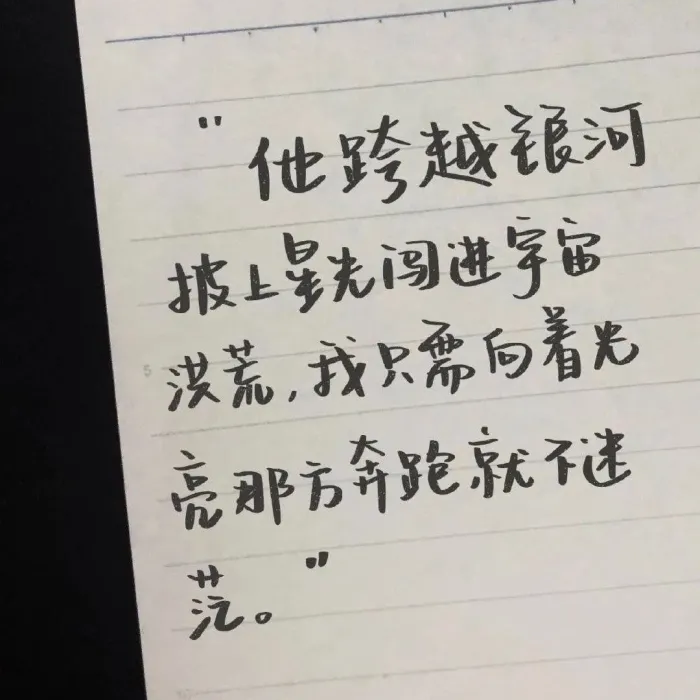 "他跨越银河
披上星光闯进宇宙
洪荒,我只需向着光
亮那方奔跑就不迷
茫。"